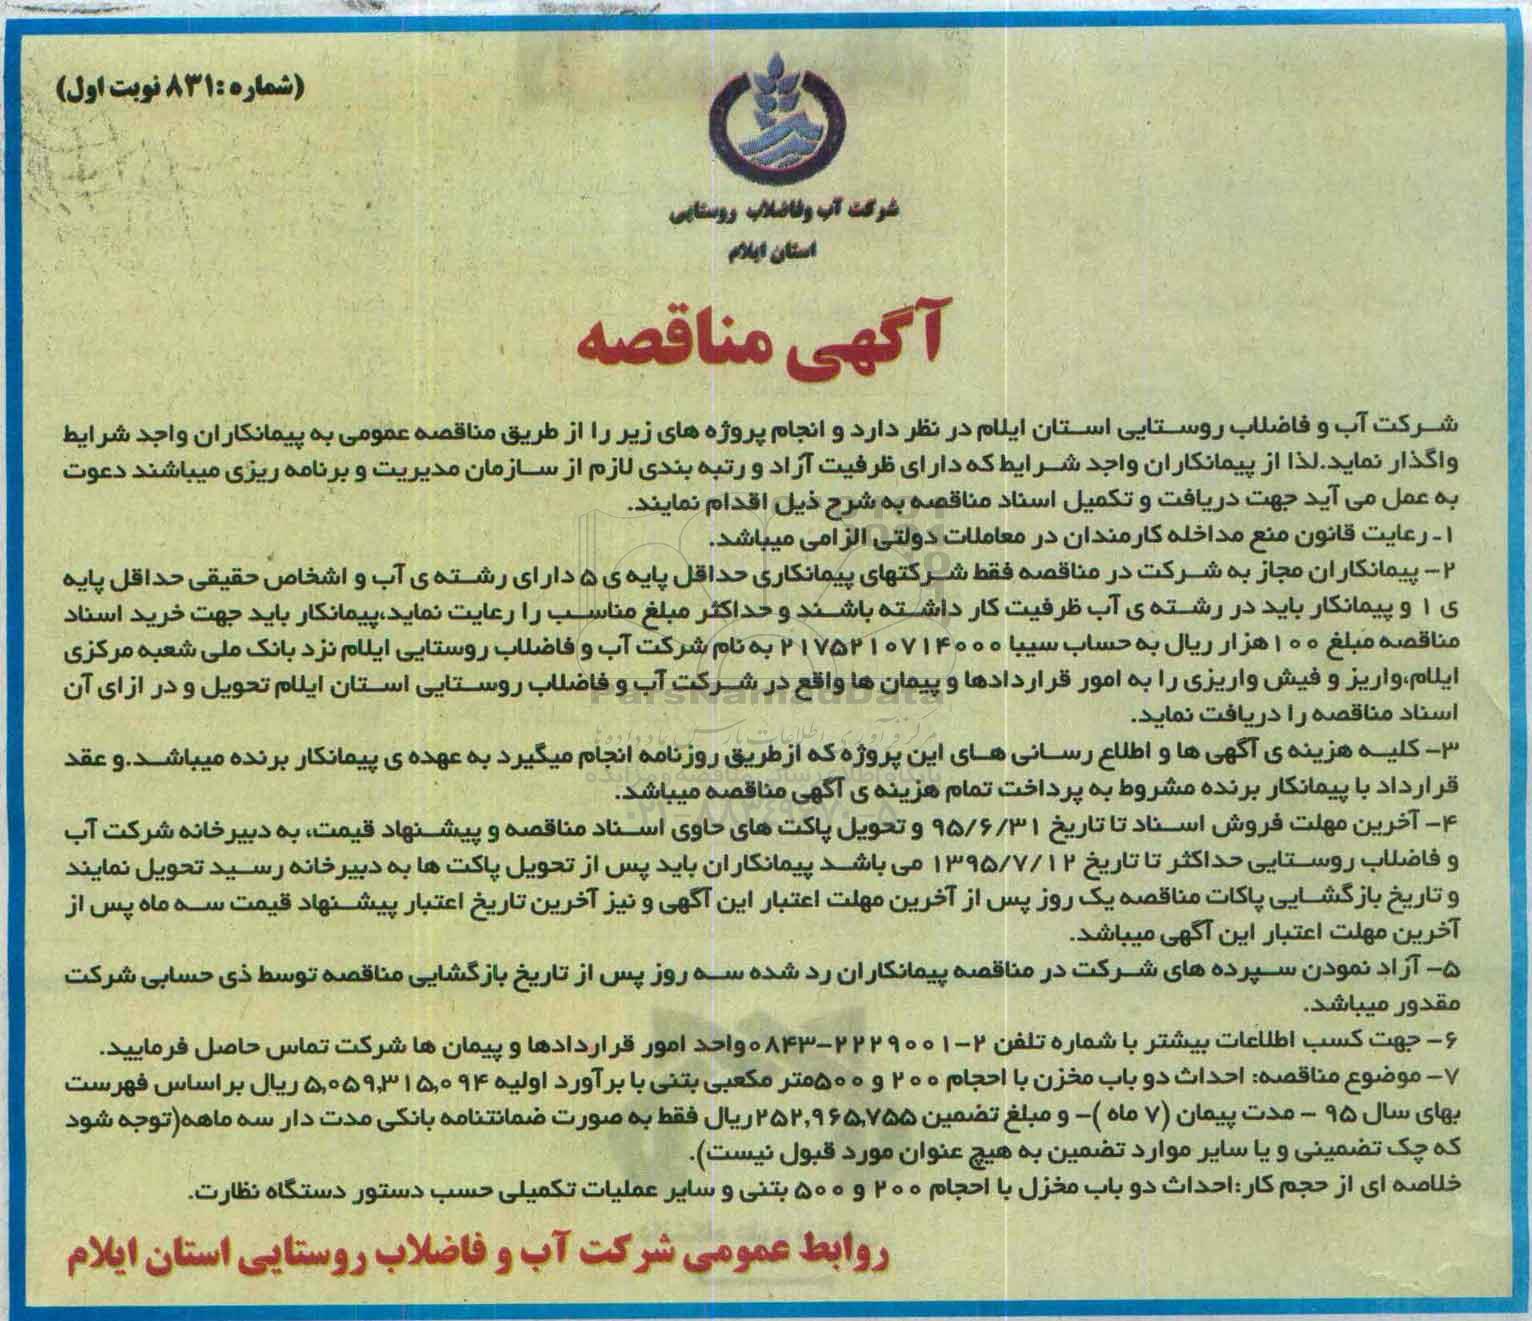 (شماره :۸۳۱ نوبت اول)
شرکت آب وفاضلاب روستایی
استان ایلام
آگهی مناقصه
شرکت آب و فاضلاب روستایی استان ایلام در نظر دارد و انجام پروژه های زیر را از طریق مناقصه عمومی به پیمانکاران واجد شرایط
واگذار نماید.لذا از پیمانکاران واجد شرایط که دارای ظرفیت آزاد و رتبه بندی لازم از سازمان مدیریت و برنامه ریزی میباشند دعوت
به عمل می آید جهت دریافت و تکمیل اسناد مناقصه به شرح ذیل اقدام نمایند.
۱- رعایت قانون منع مداخله کارمندان در معاملات دولتی الزامی میباشد.
۲- پیمانکاران مجاز به شرکت در مناقصه فقط شرکتهای پیمانکاری حداقل پایه ی ۵ دارای رشته ی آب و اشخاص حقیقی حداقل پایه
ی ۱ و پیمانکار باید در رشته ی آب ظرفیت کار داشته باشند و حداکثر مبلغ مناسب را رعایت نماید،پیمانکار باید جهت خرید اسناد
مناقصه مبلغ ۱۰۰هزار ریال به حساب سیبا ۲۱۷۵۲۱۰۷۱۴۰۰۰ به نام شرکت آب و فاضلاب روستایی ایلام نزد بانک ملی شعبه مرکزی
ایلام،واریز و فیش واریزی را به امور قراردادها و پیمان ها واقع در شرکت آب و فاضلاب روستایی استان ایلام تحویل و در ازای آن
اسناد مناقصه را دریافت نماید.
ParsNamadData
۳- کلیه هزینه ی آگهی ها و اطلاع رسانی های این پروژه که ازطریق روزنامه انجام میگیرد به عهده ی پیمانکار برنده میباشد.و عقد
قرارداد با پیمانکار برنده مشروط به پرداخت تمام هزینه ی آگهی مناقصه میباشد.
۴- آخرین مهلت فروش اسناد تا تاریخ ۹۵/۶/۳۱ و تحویل پاکت های حاوی اسناد مناقصه و پیشنهاد قیمت، به دبیرخانه شرکت آب
و فاضلاب روستایی حداکثر تا تاریخ ۱۳۹۵/۷/۱۲ می باشد پیمانکاران باید پس از تحویل پاکت ها به دبیرخانه رسید تحویل نمایند
و تاریخ بازگشایی پاکات مناقصه یک روز پس از آخرین مهلت اعتبار این آگهی و نیز آخرین تاریخ اعتبار پیشنهاد قیمت سه ماه پس از
آخرین مهلت اعتبار این آگهی میباشد.
۵- آزاد نمودن سپرده های شرکت در مناقصه پیمانکاران رد شده سه روز پس از تاریخ بازگشایی مناقصه توسط ذی حسابی شرکت
مقدور میباشد.
۶- جهت کسب اطلاعات بیشتر با شماره تلفن ۲-۲۲۲۹۰۰۱-۰۸۴۳واحد امور قراردادها و پیمان ها شرکت تماس حاصل فرمایید.
۷- موضوع مناقصه: احداث دو باب مخزن با احجام ۲۰۰ و ۵۰۰متر مکعبی بتنی با برآورد اولیه ۵,۰۵۹,۳۱۵,۰۹۴ ریال براساس فهرست
بهای سال ۹۵ - مدت پیمان (۷ ماه )- و مبلغ تضمین ۲۵۲,۹۶۵,۷۵۵ریال فقط به صورت ضمانتنامه بانکی مدت دار سه ماهه(توجه شود
که چک تضمینی و یا سایر موارد تضمین به هیچ عنوان مورد قبول نیست).
خلاصه ای از حجم کار:احداث دو باب مخزل با احجام ۲۰۰ و ۵۰۰ بتنی و سایر عملیات تکمیلی حسب دستور دستگاه نظارت.
روابط عمومی شرکت آب و فاضلاب روستایی استان ایلام